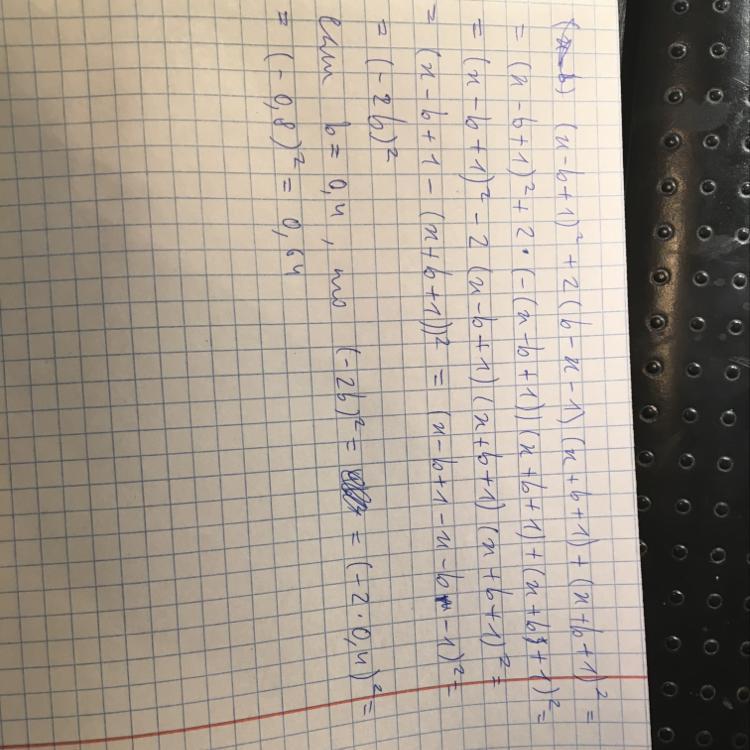 (x-b+1)² + 2(b-x-1)(x+b+1) + (x+b+1)² =
= (x-b+1)² + 2·(-(x-b+1))(x+b+1) + (x+b+1)² =
= (x-b+1)² - 2(x-b+1)(x+b+1) (x+b+1)² =
= (x-b+1-(x+b+1))² = (x-b+1-x-b-1)² =
= (-2b)²
если b=0,4, то (-2b)² = = (-2·0,4)² =
= (-0,8)² = 0,64